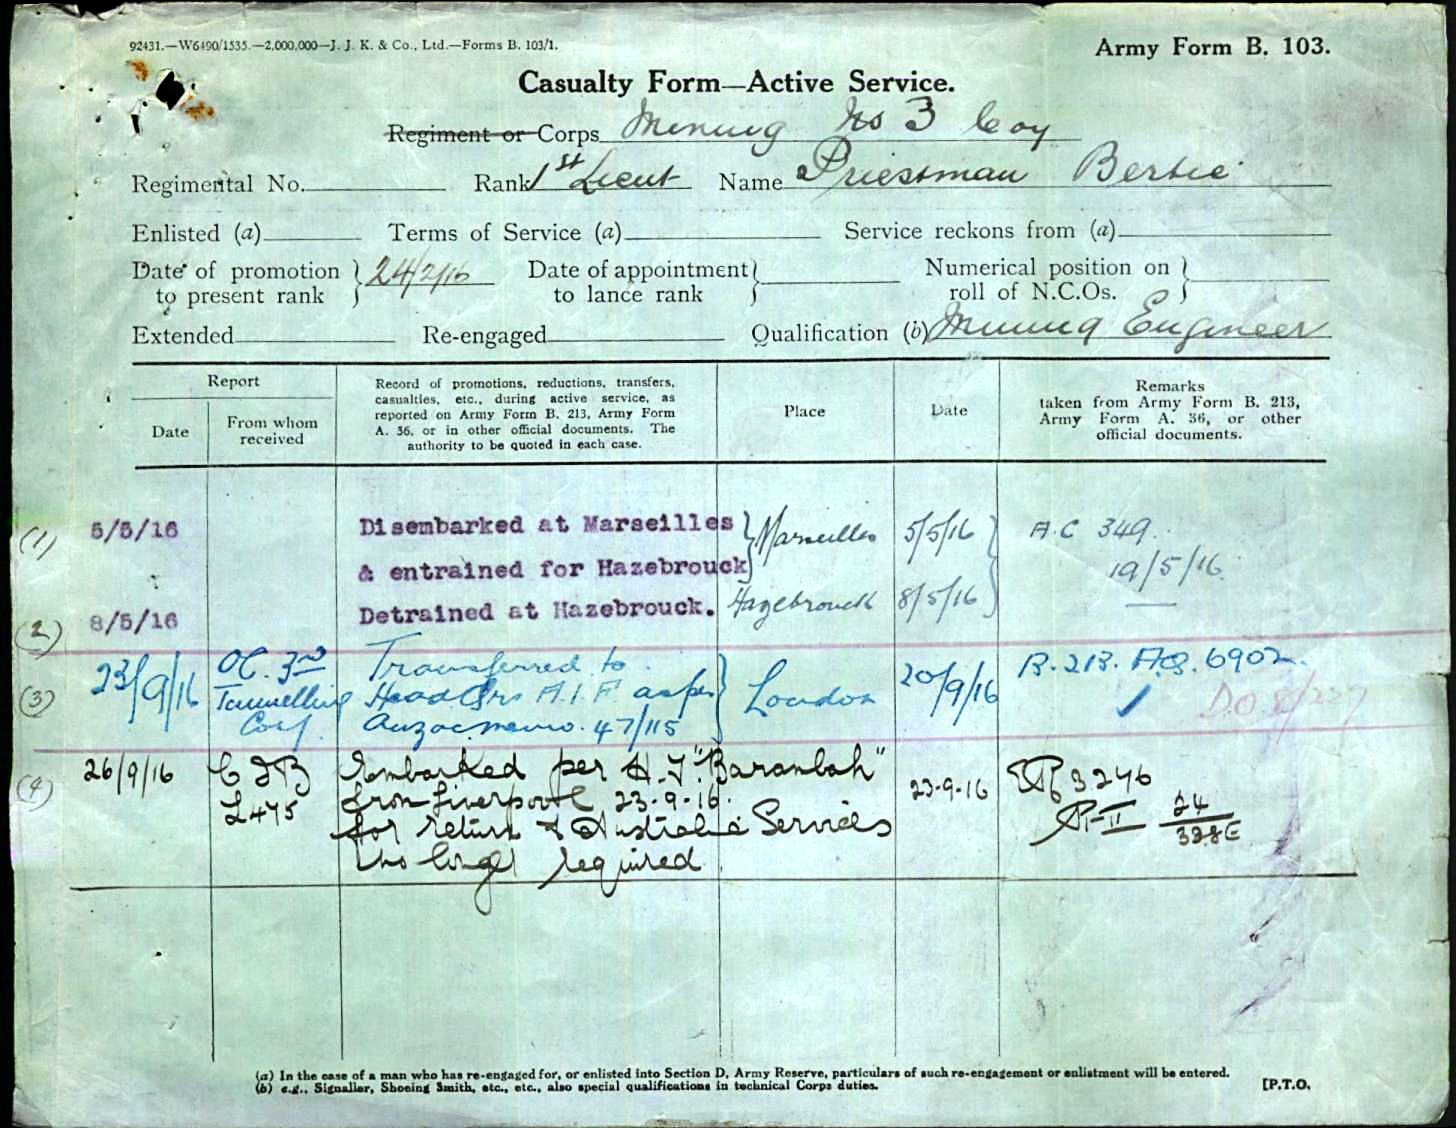 92431.—W6490/1535.—2,000,000—J. J. K. & Co., Ltd.—Forms B. 103/1.
Army Form B. 103.
Casualty Form—Active Service.
Regiment or Corps Mining No 3 Coy
Regimental No. Rank 1st Lieut Name Priestman Bertie
Enlisted (a) Terms of Service (a) Service reckons from (a)
Date of promotion to present rank } 24/2/16 Date of appointment to lance rank } Numerical position on roll of N.C.Os. }
Extended Re-engaged Qualification (b) Mining Engineer
Report
Date
From whom received
Record of promotions, reductions, transfers,
casualties, etc., during active service, as
reported on Army Form B. 213, Army Form
A. 36, or in other official documents. The
authority to be quoted in each case.
Place
Date
Remarks
taken from Army Form B. 213,
Army Form A. 36, or other
official documents.
(1) 5/5/16 Disembarked at Marseilles } Marseilles 5/5/16 A.C 349.
& entrained for Hazebrouck 19/5/16
(2) 8/5/16 Detrained at Hazebrouck. Hazebrouck 8/5/16
(3) 23/9/16 OC. 3rd Transferred to London 20/9/16 B. 213. 6902.
Tunnelling Head Qrs A.I.F. as per D.O.
Anzac memo. 47/115
(4) 26/9/16 Embarked per H.T. "Barambah" 23-9-16 3246
L475 from Liverpool 23.9.16. 24
for return to Australia Services
no longer required
(a) In the case of a man who has re-engaged for, or enlisted into Section D, Army Reserve, particulars of such re-engagement or enlistment will be entered.
(b) e.g., Signaller, Shoeing Smith, etc., etc., also special qualifications in technical Corps duties.
[P.T.O.